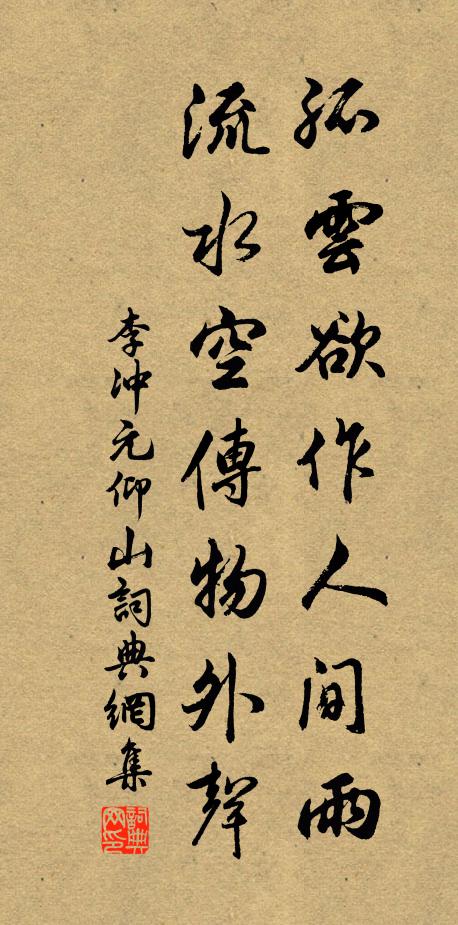 孤雲欲作人间雨
流水空傳物外聲
李冲元仰山詞典網集
詞典网印